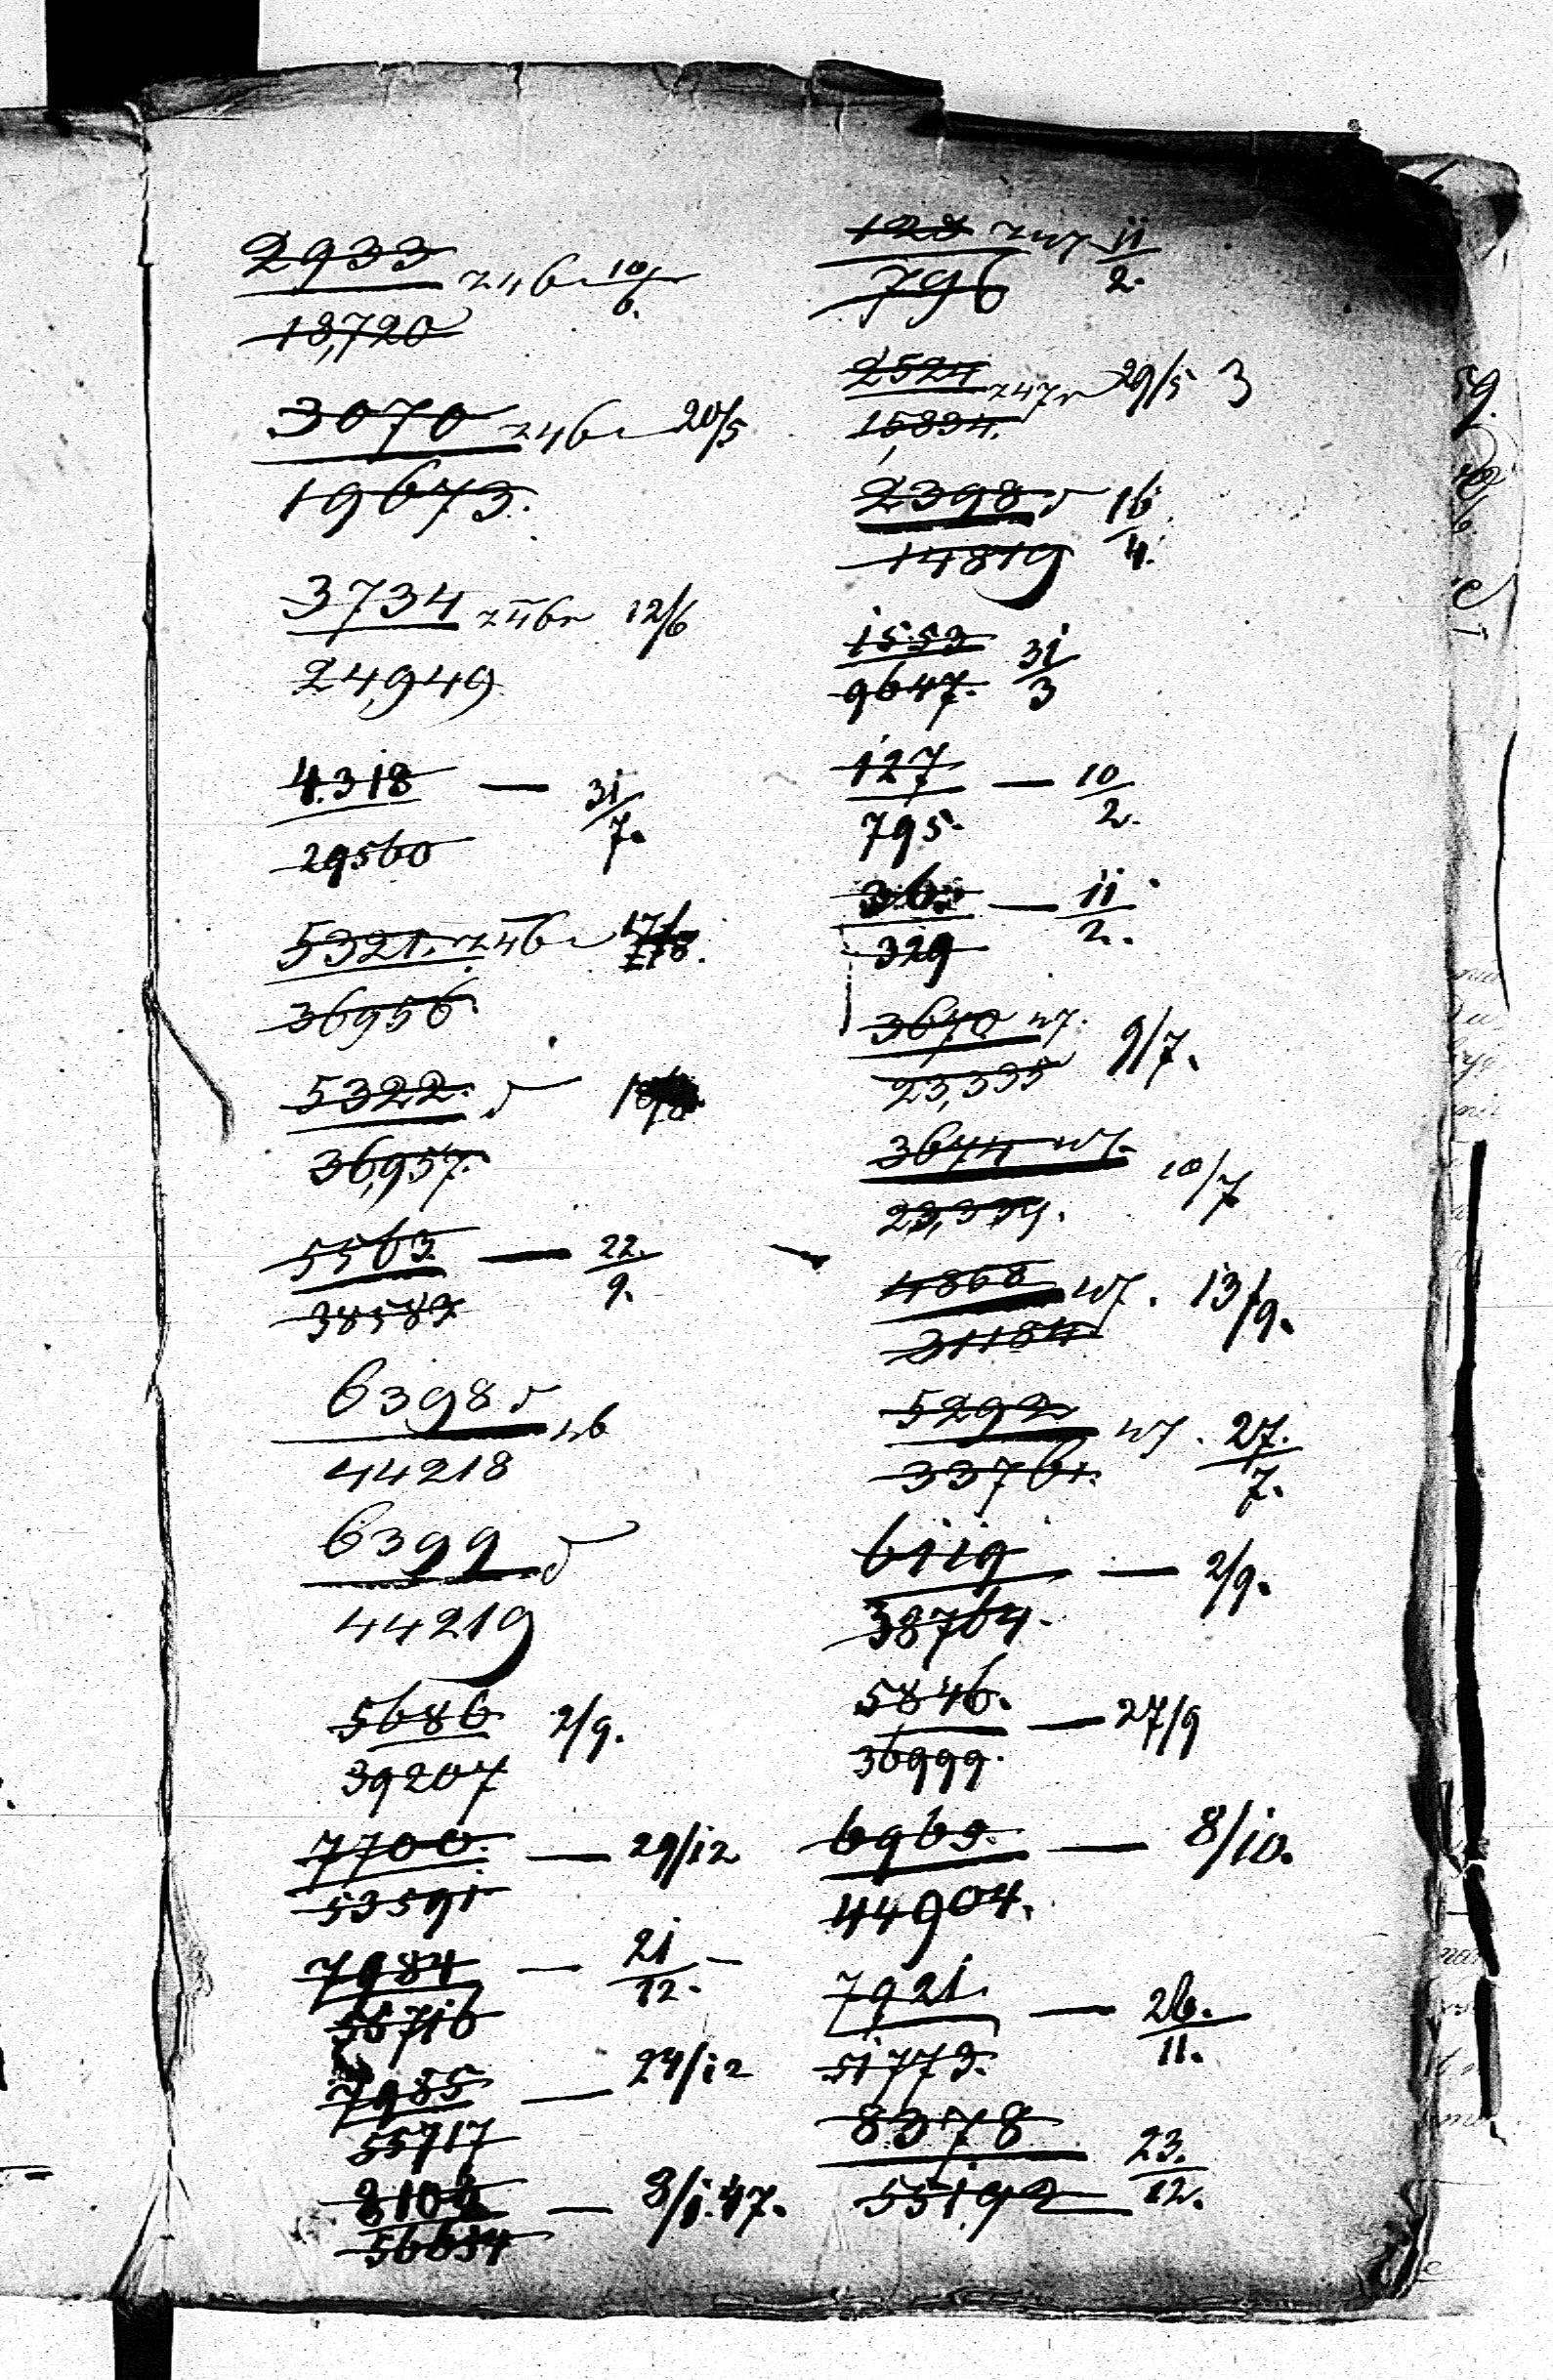 2933 z 46 r 10/6.
18,720
3070 z 46 r 20/5
19673.
3734 z 46 r 12/6
24,949
4318 — 31/7.
29560
5321. z 46 r
36956.
5322. d°
36,957.
5563. — 22./9.
38583
6398 d° 46
44218
6399 d°
44219
5686 2/9.
39207
7700. — 29/12
53591
7984 — 21/12. —
55716
7985 — 24/12
55717
8102 — 8/1.47.
56654
128 z 47 11/2.
796
2524 z 47 r 29/5 3
15,834.
2398 d° 16/4.
14819
1553 31/3
9647.
127 — 10/2.
795.
36 — 11/2.
329
3640 47. 9/7.
23,335
3644 47. 10/7
23,339.
4868 47. 13/9.
31184.
5292 47. 27./7.
33761.
6119 — 2/9.
38764.
5846. — 27/9
36999.
6965. — 8/10.
44904.
7921. — 26./11.
51773.
8378 23./12.
55192